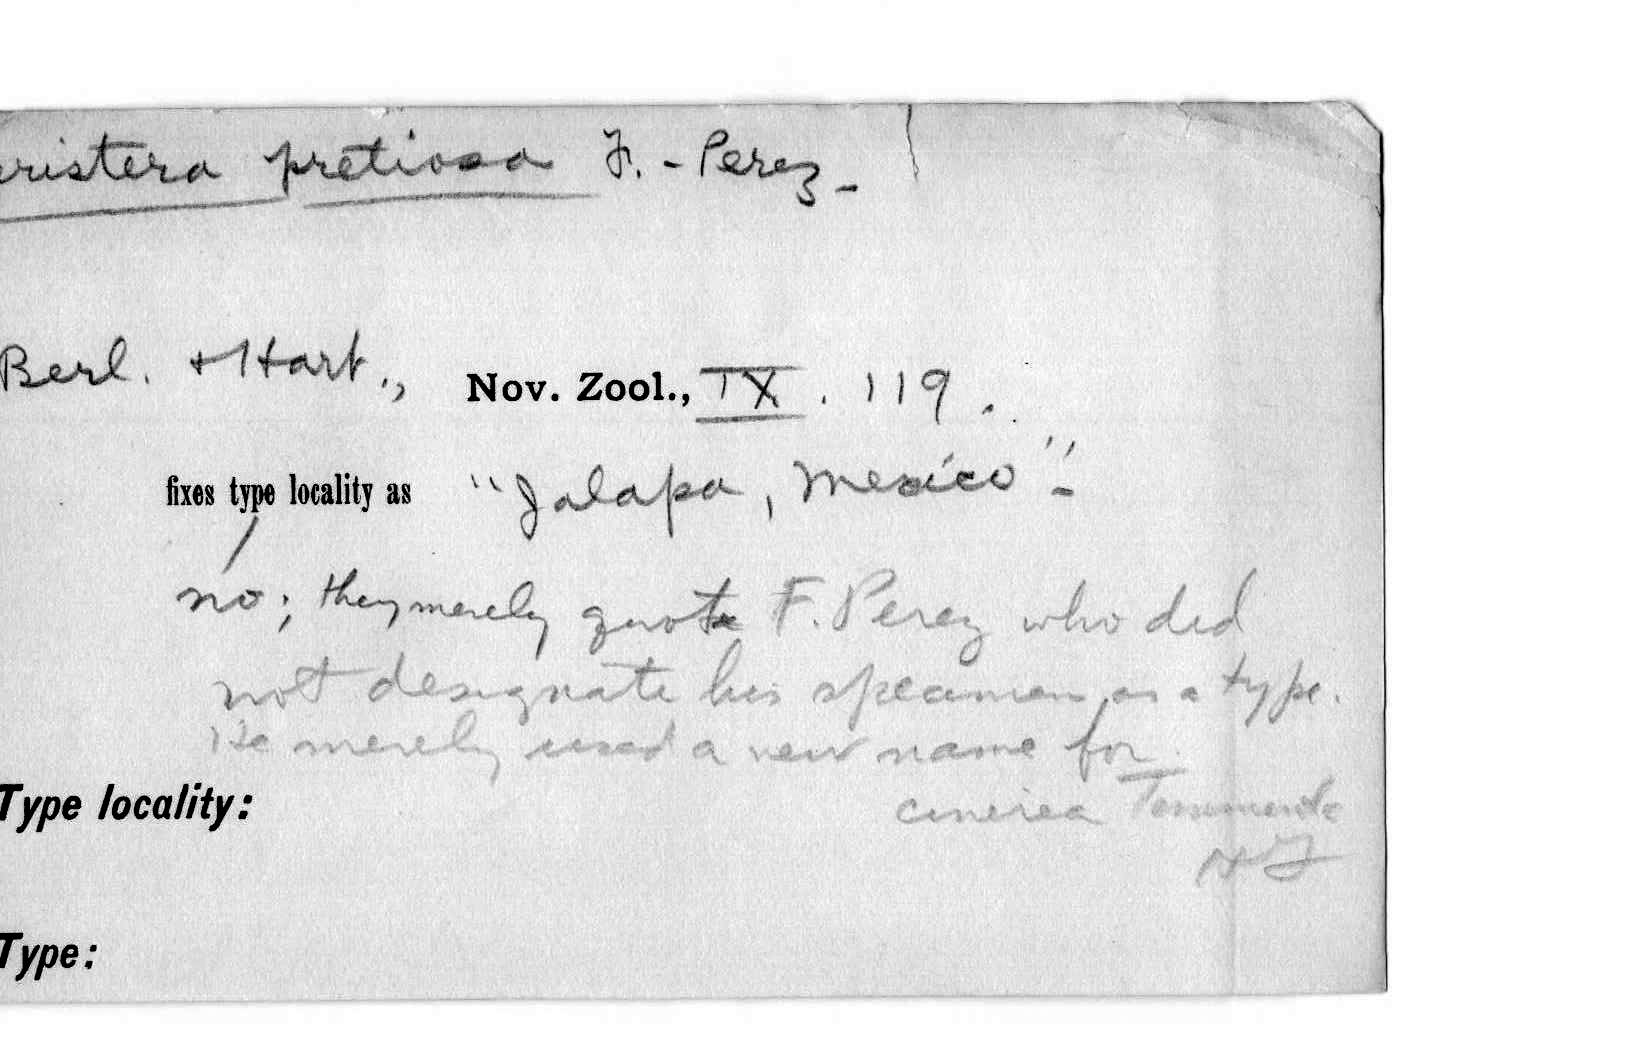 eristera pretiosa F.-Perez-
Berl. + Hart., Nov. Zool., IX. 119.
fixes type locality as "Jalapa, Mexico"-
no; they merely quote F. Perez who did
not designate his specimen as a type.
He merely used a new name for
Type locality: cinerea Temminck
Type: